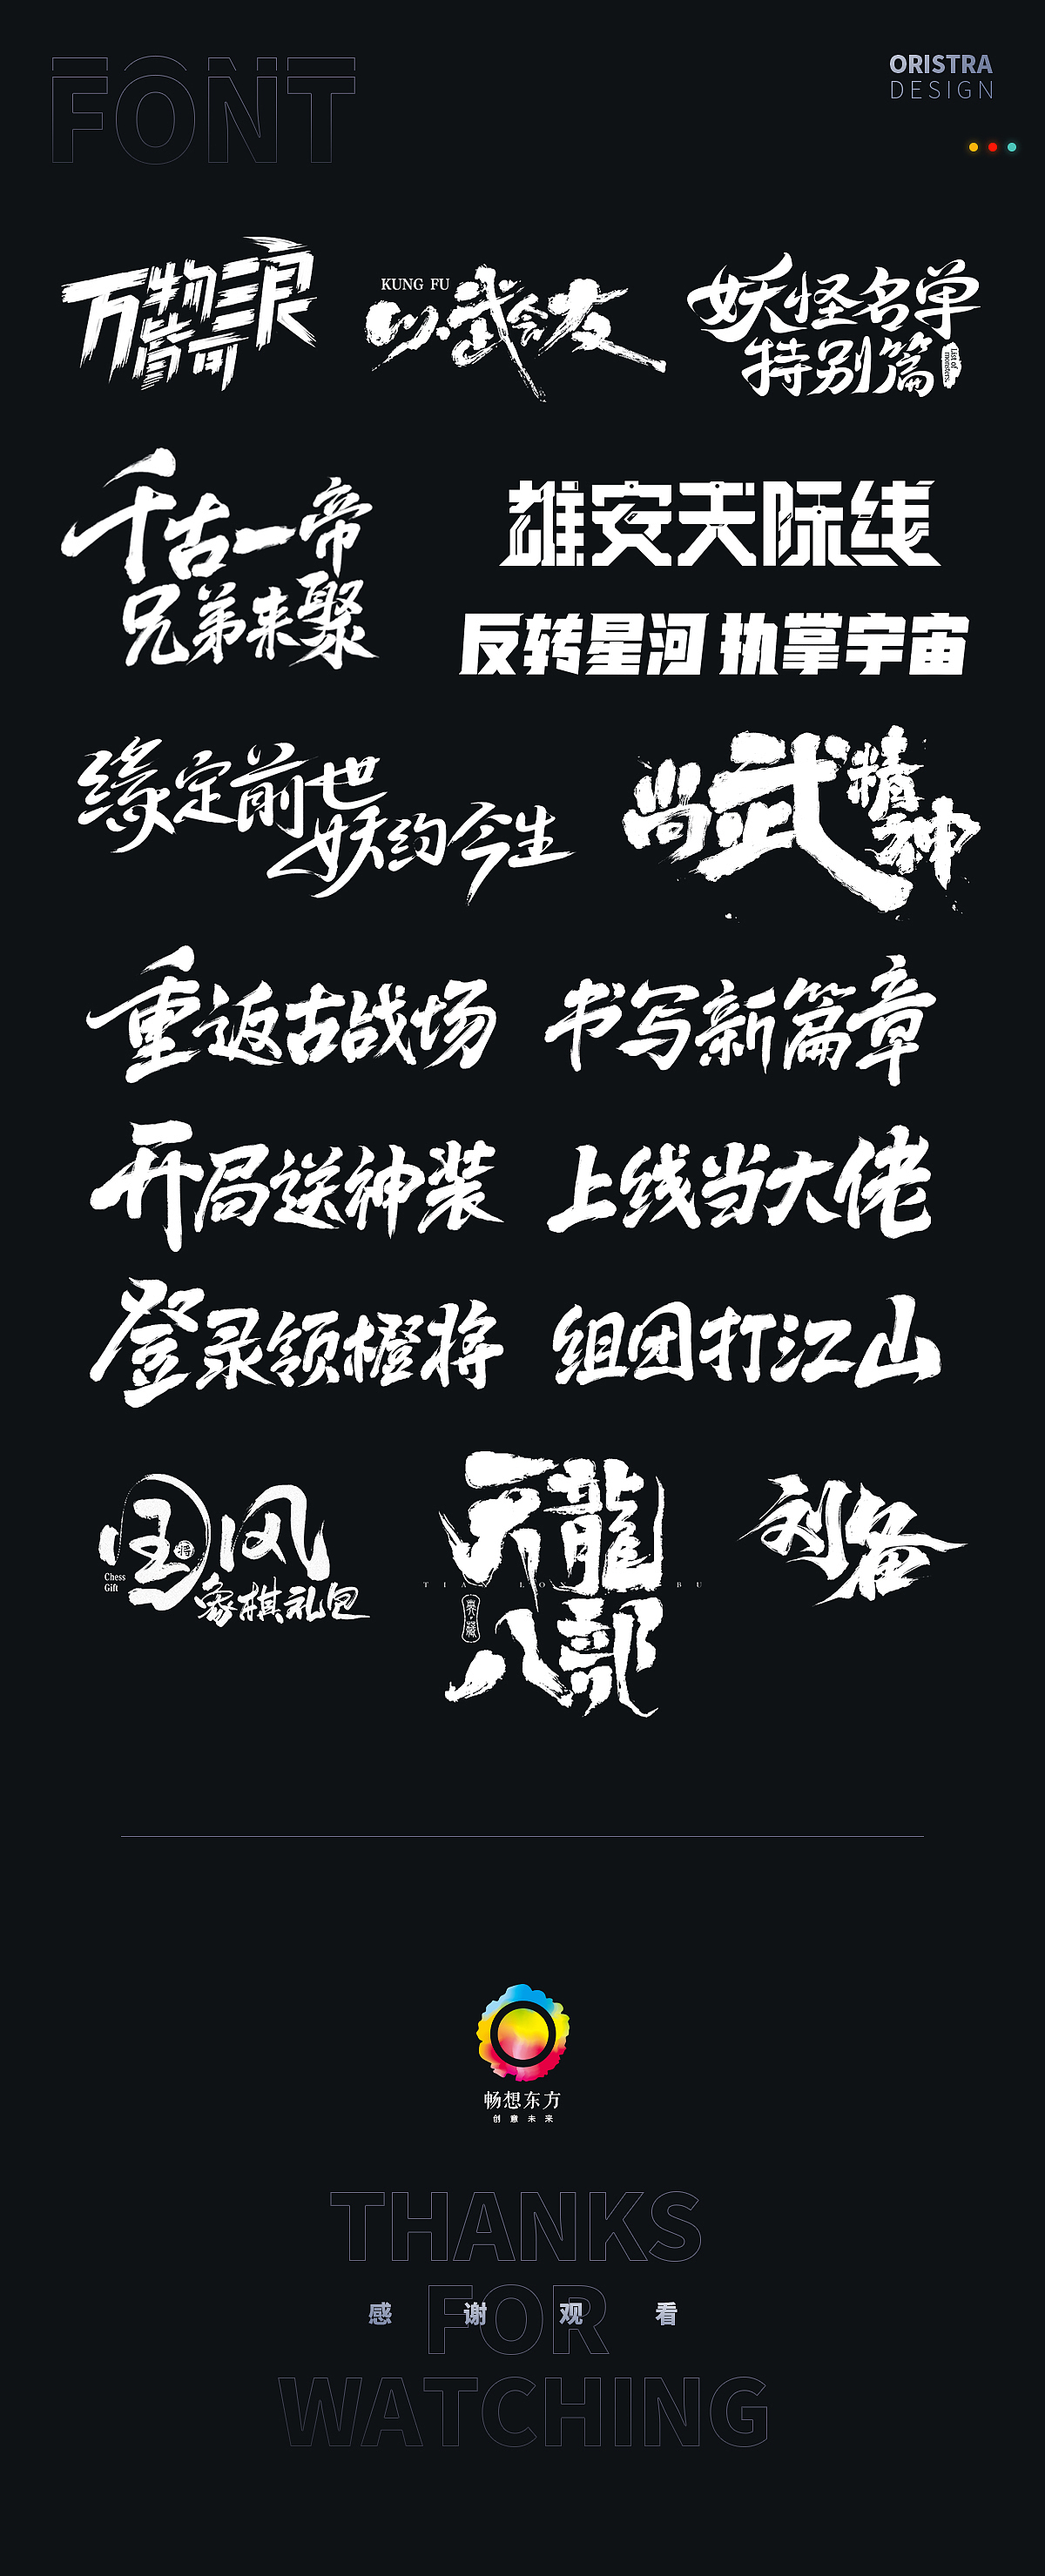 FONT
ORISTRA
DESIGN
万物皆可三浪
KUNG FU
以武会友
妖怪名单
特别篇
List of
monsters
千古一帝
兄弟来聚
雄安天际线
反转星河 执掌宇宙
缘定前世
妖约今生
尚武精神
重返古战场 书写新篇章
开局送神装 上线当大佬
登录领橙将 组团打江山
国风
将
Chess
Gift
象棋礼包
天龍
TIAN LONG BA BU
八部
刘备
畅想东方
创意未来
THANKS
FOR
感谢观看
WATCHING